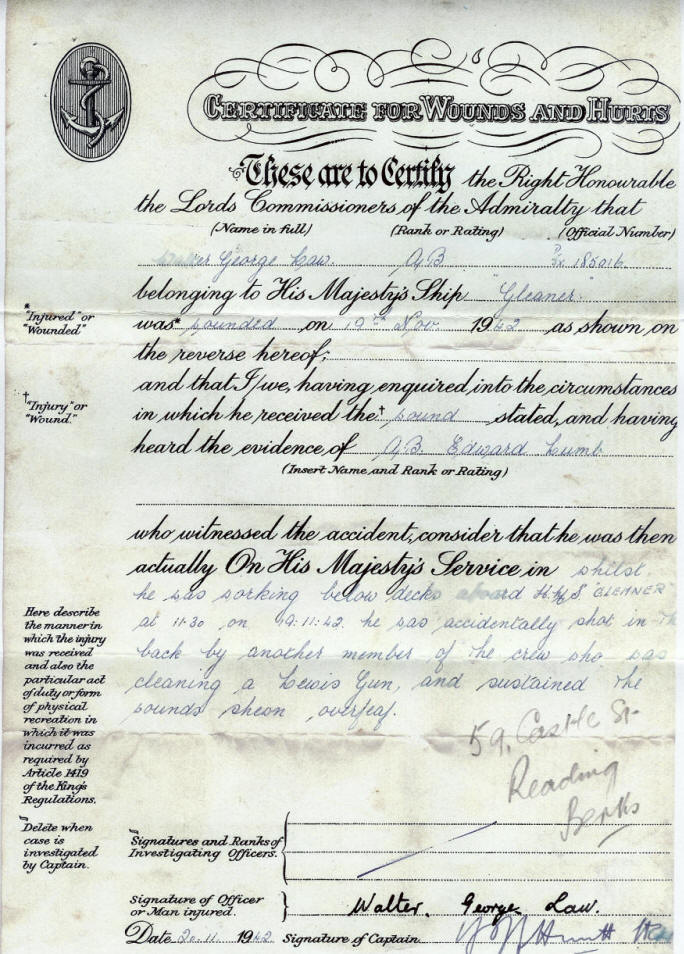 CERTIFICATE FOR WOUNDS AND HURTS
These are to Certify the Right Honourable
the Lords Commissioners of the Admiralty that
(Name in full) (Rank or Rating) (Official Number)
George Law. AB 185016
belonging to His Majesty's Ship "Gleaner"
*"Injured" or "Wounded"
was* wounded on 19th Nov. 1942 as shown on
the reverse hereof;
and that I/we, having enquired into the circumstances
†"Injury" or "Wound."
in which he received the† wound stated, and having
heard the evidence of A.B. Edward Lumb
(Insert Name and Rank or Rating)
who witnessed the accident, consider that he was then
actually On His Majesty's Service in whilst
he was working below decks aboard H.M.S GLEANER
at 11.30 on 19.11.42. he was accidentally shot in the
back by another member of the crew who was
cleaning a Lewis Gun, and sustained the
wounds shewn overleaf.
Here describe
the manner in
which the injury
was received
and also the
particular act
of duty or form
of physical
recreation in
which it was
incurred as
required by
Article 1419
of the King's
Regulations.
59, Castle St
Reading
Berks
Delete when
case is
investigated
by Captain.
Signatures and Ranks of
Investigating Officers.
Signature of Officer
or Man injured. Walter. George. Law.
Date 20.11 1942 Signature of Captain